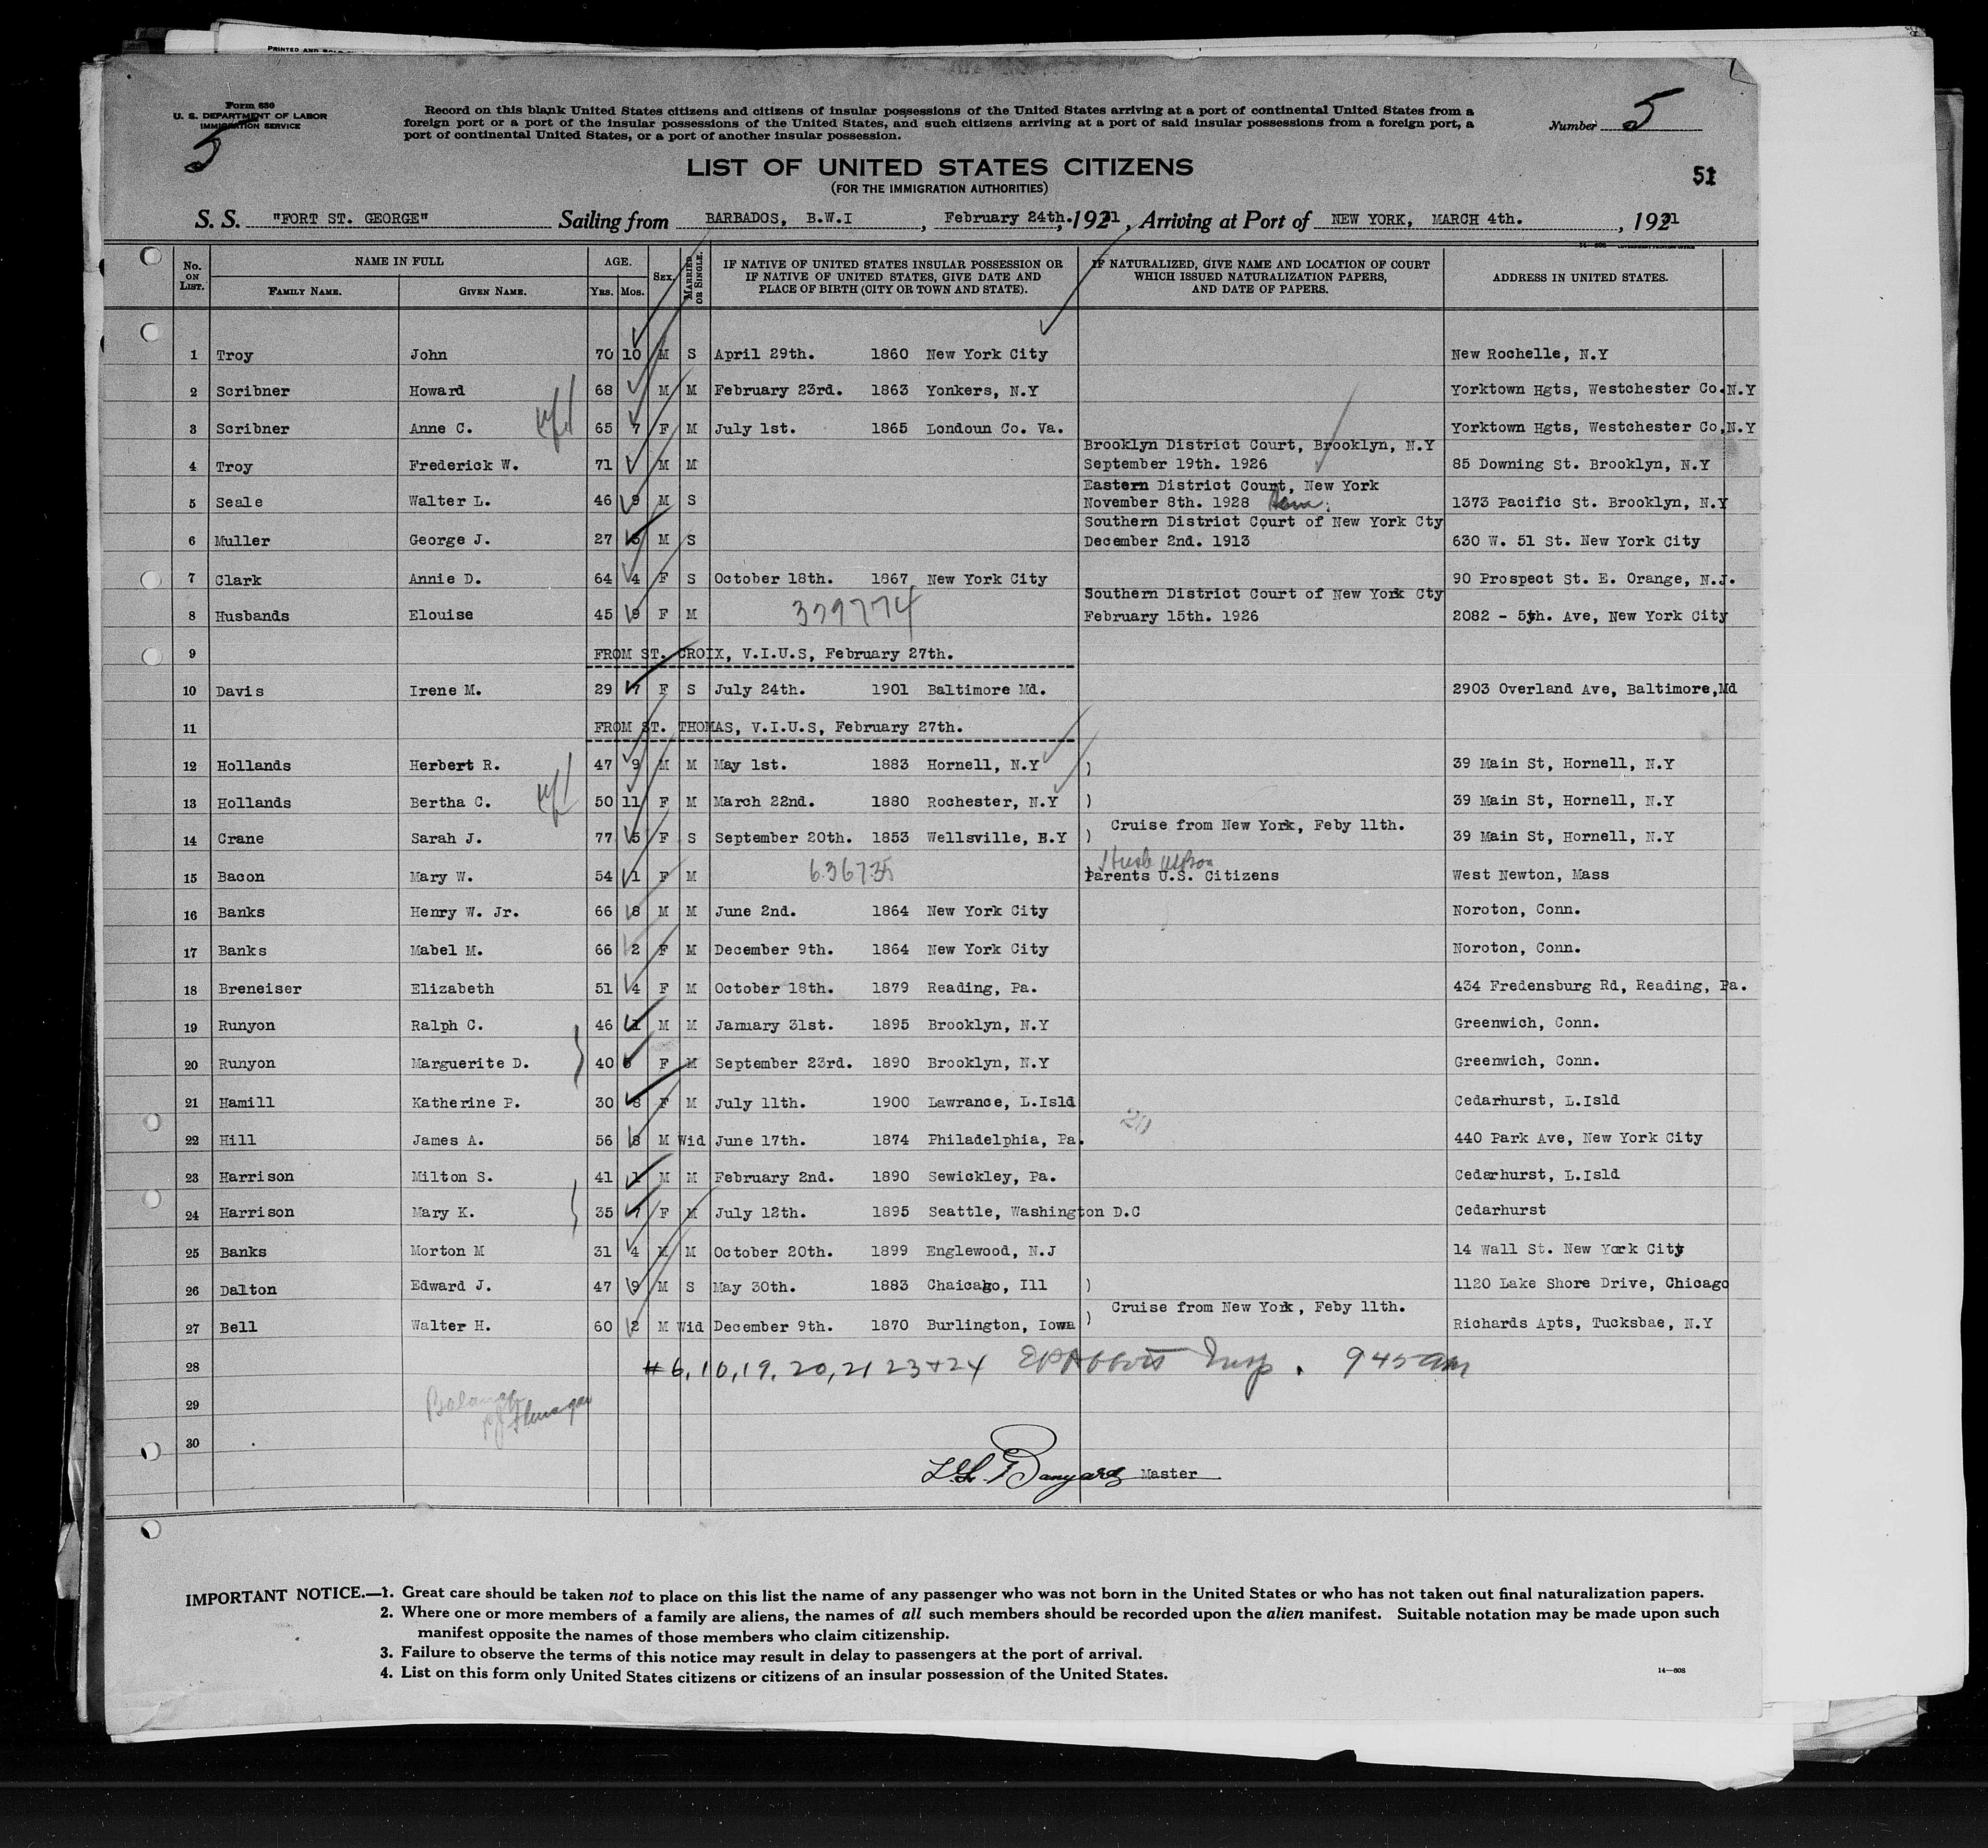 PRINTED AND SOLD BY
Form 630
U. S. DEPARTMENT OF LABOR
IMMIGRATION SERVICE
5
Record on this blank United States citizens and citizens of insular possessions of the United States arriving at a port of continental United States from a
foreign port or a port of the insular possessions of the United States, and such citizens arriving at a port of said insular possessions from a foreign port, a
port of continental United States, or a port of another insular possession.
Number 5
LIST OF UNITED STATES CITIZENS
(FOR THE IMMIGRATION AUTHORITIES)
51
S. S. "FORT ST. GEORGE" Sailing from BARBADOS, B.W.I , February 24th. , 1921 , Arriving at Port of NEW YORK, MARCH 4th. , 1921
No. ON LIST. NAME IN FULL FAMILY NAME. GIVEN NAME. AGE. YRS. MOS. SEX. MARRIED OR SINGLE. IF NATIVE OF UNITED STATES INSULAR POSSESSION OR IF NATIVE OF UNITED STATES, GIVE DATE AND PLACE OF BIRTH (CITY OR TOWN AND STATE). IF NATURALIZED, GIVE NAME AND LOCATION OF COURT WHICH ISSUED NATURALIZATION PAPERS, AND DATE OF PAPERS. ADDRESS IN UNITED STATES.
1 Troy John 70 10 M S April 29th. 1860 New York City New Rochelle, N.Y
2 Scribner Howard 68 M M February 23rd. 1863 Yonkers, N.Y Yorktown Hgts, Westchester Co.N.Y
3 Scribner Anne C. 65 7 F M July 1st. 1865 Londoun Co. Va. Yorktown Hgts, Westchester Co,N.Y
Brooklyn District Court, Brooklyn, N.Y
4 Troy Frederick W. 71 M M September 19th. 1926 85 Downing St. Brooklyn, N.Y
Eastern District Court, New York
5 Seale Walter L. 46 9 M S November 8th. 1928 1373 Pacific St. Brooklyn, N.Y
Southern District Court of New York Cty
6 Muller George J. 27 5 M S December 2nd. 1913 630 W. 51 St. New York City
7 Clark Annie D. 64 4 F S October 18th. 1867 New York City 90 Prospect St. E. Orange, N.J.
Southern District Court of New York Cty
8 Husbands Elouise 45 9 F M 379774 February 15th. 1926 2082 - 5th. Ave, New York City
9 FROM ST. CROIX, V.I.U.S, February 27th.
10 Davis Irene M. 29 7 F S July 24th. 1901 Baltimore Md. 2903 Overland Ave, Baltimore,Md
11 FROM ST. THOMAS, V.I.U.S, February 27th.
12 Hollands Herbert R. 47 9 M M May 1st. 1883 Hornell, N.Y ) 39 Main St, Hornell, N.Y
13 Hollands Bertha C. 50 11 F M March 22nd. 1880 Rochester, N.Y ) 39 Main St, Hornell, N.Y
Cruise from New York, Feby 11th.
14 Crane Sarah J. 77 5 F S September 20th. 1853 Wellsville, N.Y ) 39 Main St, Hornell, N.Y
15 Bacon Mary W. 54 1 F M 636735 Parents U.S. Citizens West Newton, Mass
16 Banks Henry W. Jr. 66 8 M M June 2nd. 1864 New York City Noroton, Conn.
17 Banks Mabel M. 66 2 F M December 9th. 1864 New York City Noroton, Conn.
18 Breneiser Elizabeth 51 4 F M October 18th. 1879 Reading, Pa. 434 Fredensburg Rd, Reading, Pa.
19 Runyon Ralph C. 46 1 M M January 31st. 1895 Brooklyn, N.Y Greenwich, Conn.
20 Runyon Marguerite D. 40 F M September 23rd. 1890 Brooklyn, N.Y Greenwich, Conn.
21 Hamill Katherine P. 30 8 F M July 11th. 1900 Lawrance, L.Isld Cedarhurst, L.Isld
20
22 Hill James A. 56 8 M Wid June 17th. 1874 Philadelphia, Pa. 440 Park Ave, New York City
23 Harrison Milton S. 41 1 M M February 2nd. 1890 Sewickley, Pa. Cedarhurst, L.Isld
24 Harrison Mary K. 35 7 F M July 12th. 1895 Seattle, Washington D.C Cedarhurst
25 Banks Morton M 31 4 M M October 20th. 1899 Englewood, N.J 14 Wall St. New York City
26 Dalton Edward J. 47 9 M S May 30th. 1883 Chaicago, Ill ) 1120 Lake Shore Drive, Chicago
Cruise from New York, Feby 11th.
27 Bell Walter H. 60 2 M Wid December 9th. 1870 Burlington, Iowa ) Richards Apts, Tucksbae, N.Y
28 # 6, 10, 19, 20, 21 23 + 24 EP Abbott Insp. 945 am
29
30
Master
IMPORTANT NOTICE.—1. Great care should be taken not to place on this list the name of any passenger who was not born in the United States or who has not taken out final naturalization papers.
2. Where one or more members of a family are aliens, the names of all such members should be recorded upon the alien manifest. Suitable notation may be made upon such
manifest opposite the names of those members who claim citizenship.
3. Failure to observe the terms of this notice may result in delay to passengers at the port of arrival.
4. List on this form only United States citizens or citizens of an insular possession of the United States.
14—608